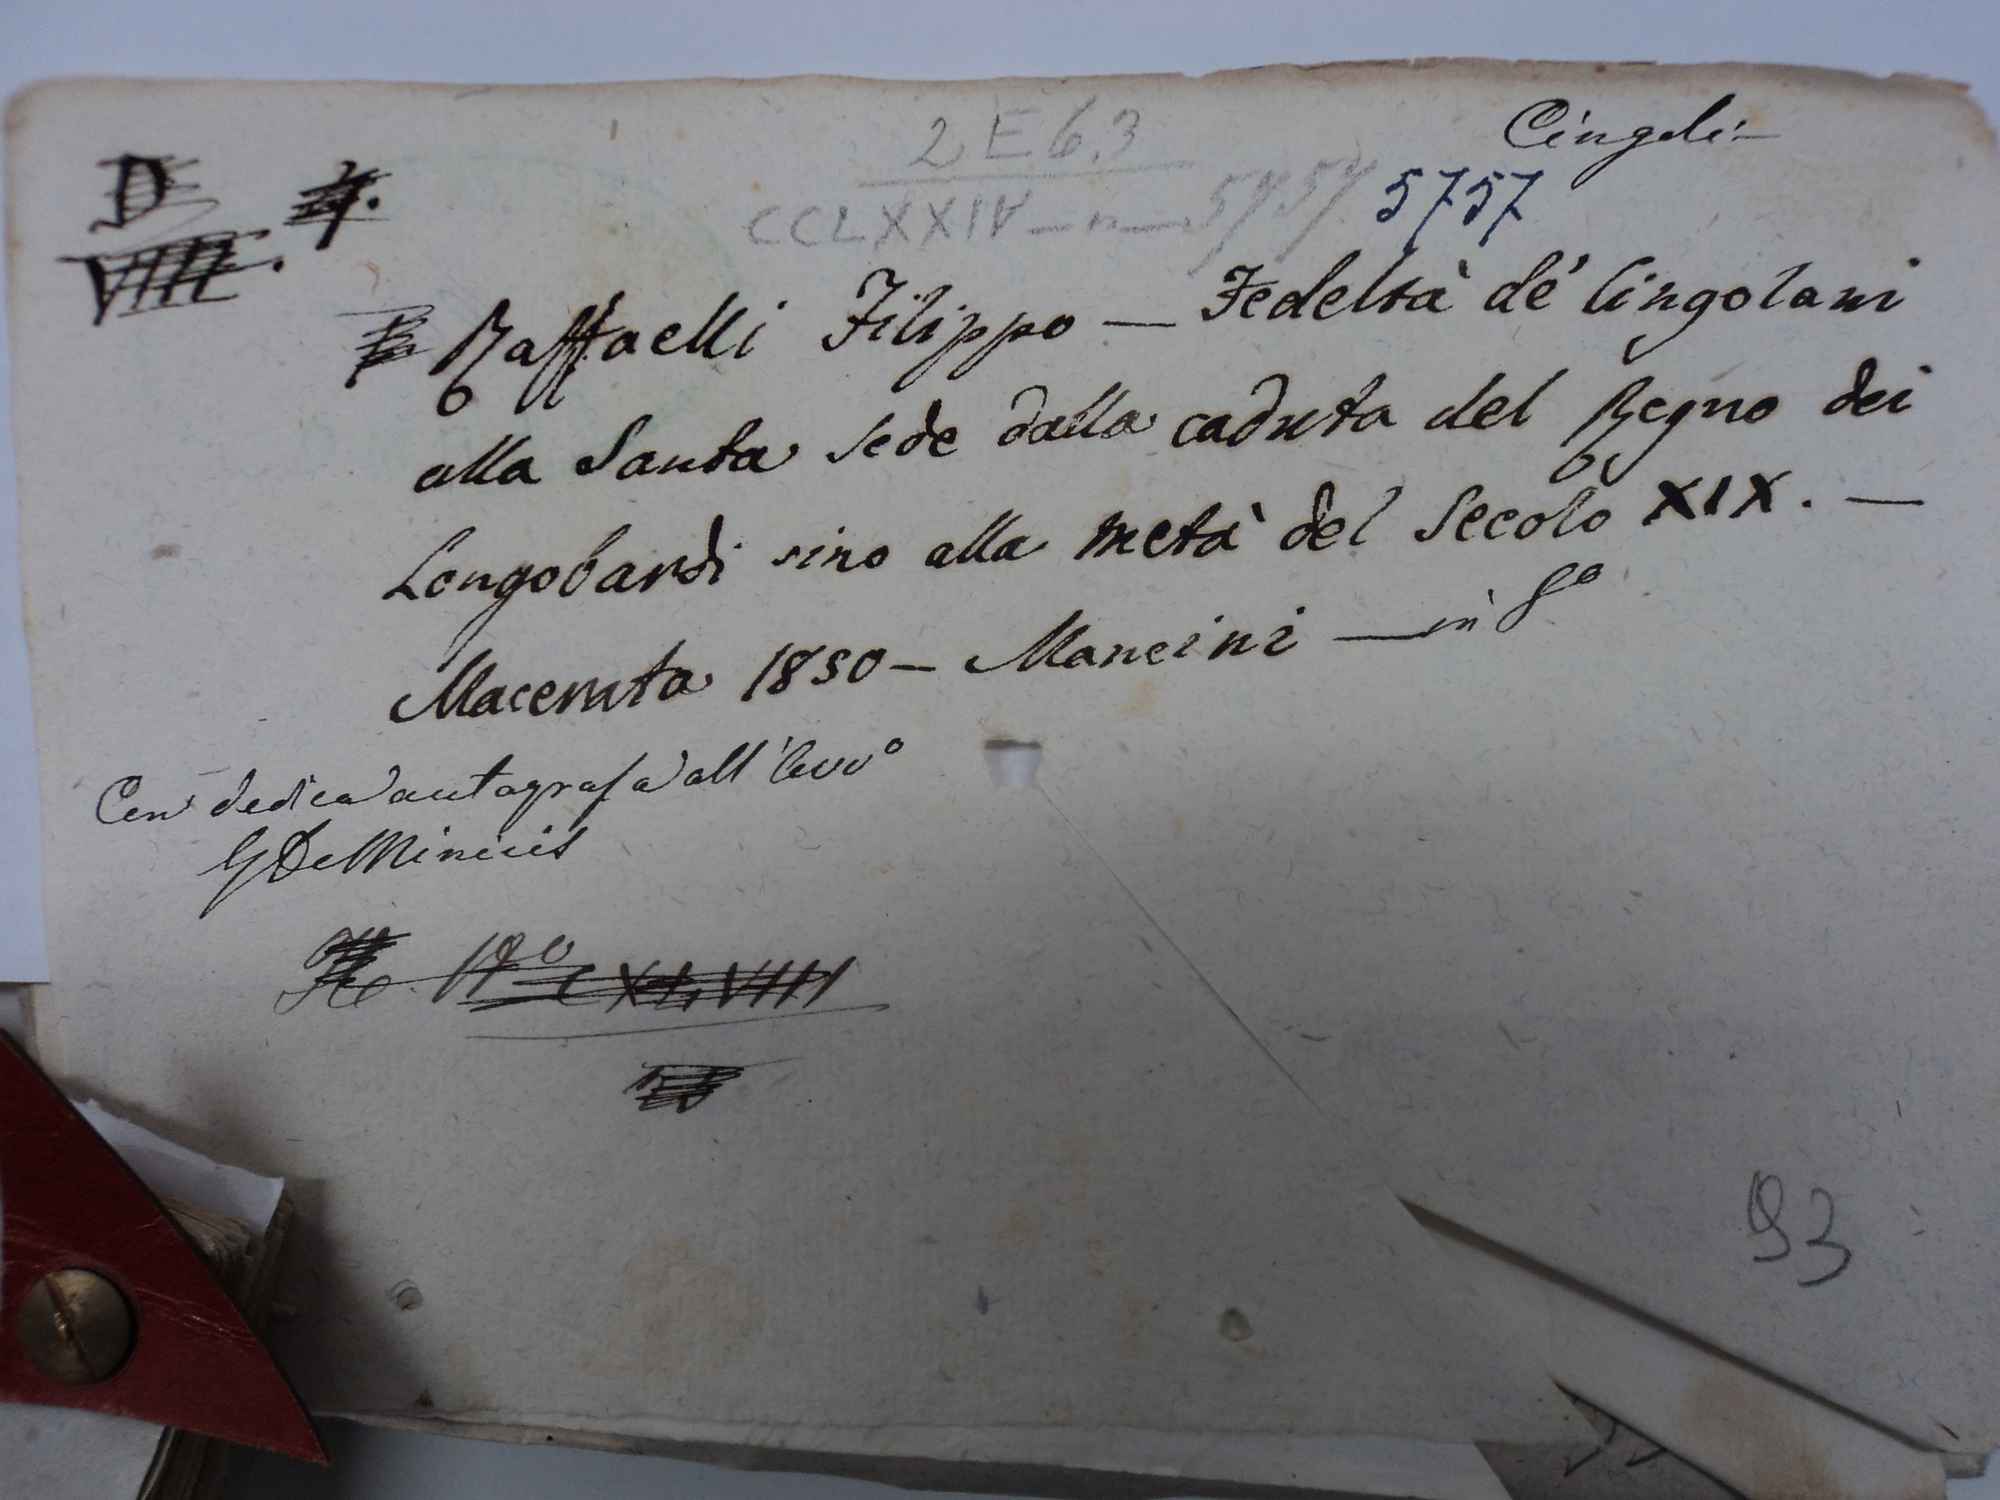 Cingoli
2 E 6.3
CCLXXIV - n - 5757 5757
D
VIII. 4.
Raffaelli Filippo — Fedeltà de' Cingolani
alla Santa Sede dalla caduta del Regno dei
Longobardi sino alla metà del Secolo XIX. —
Macerata 1850 — Mancini — in 8º
Con dedica autografa all'Avvº
G De Minicis
Nº CXLVIII
93